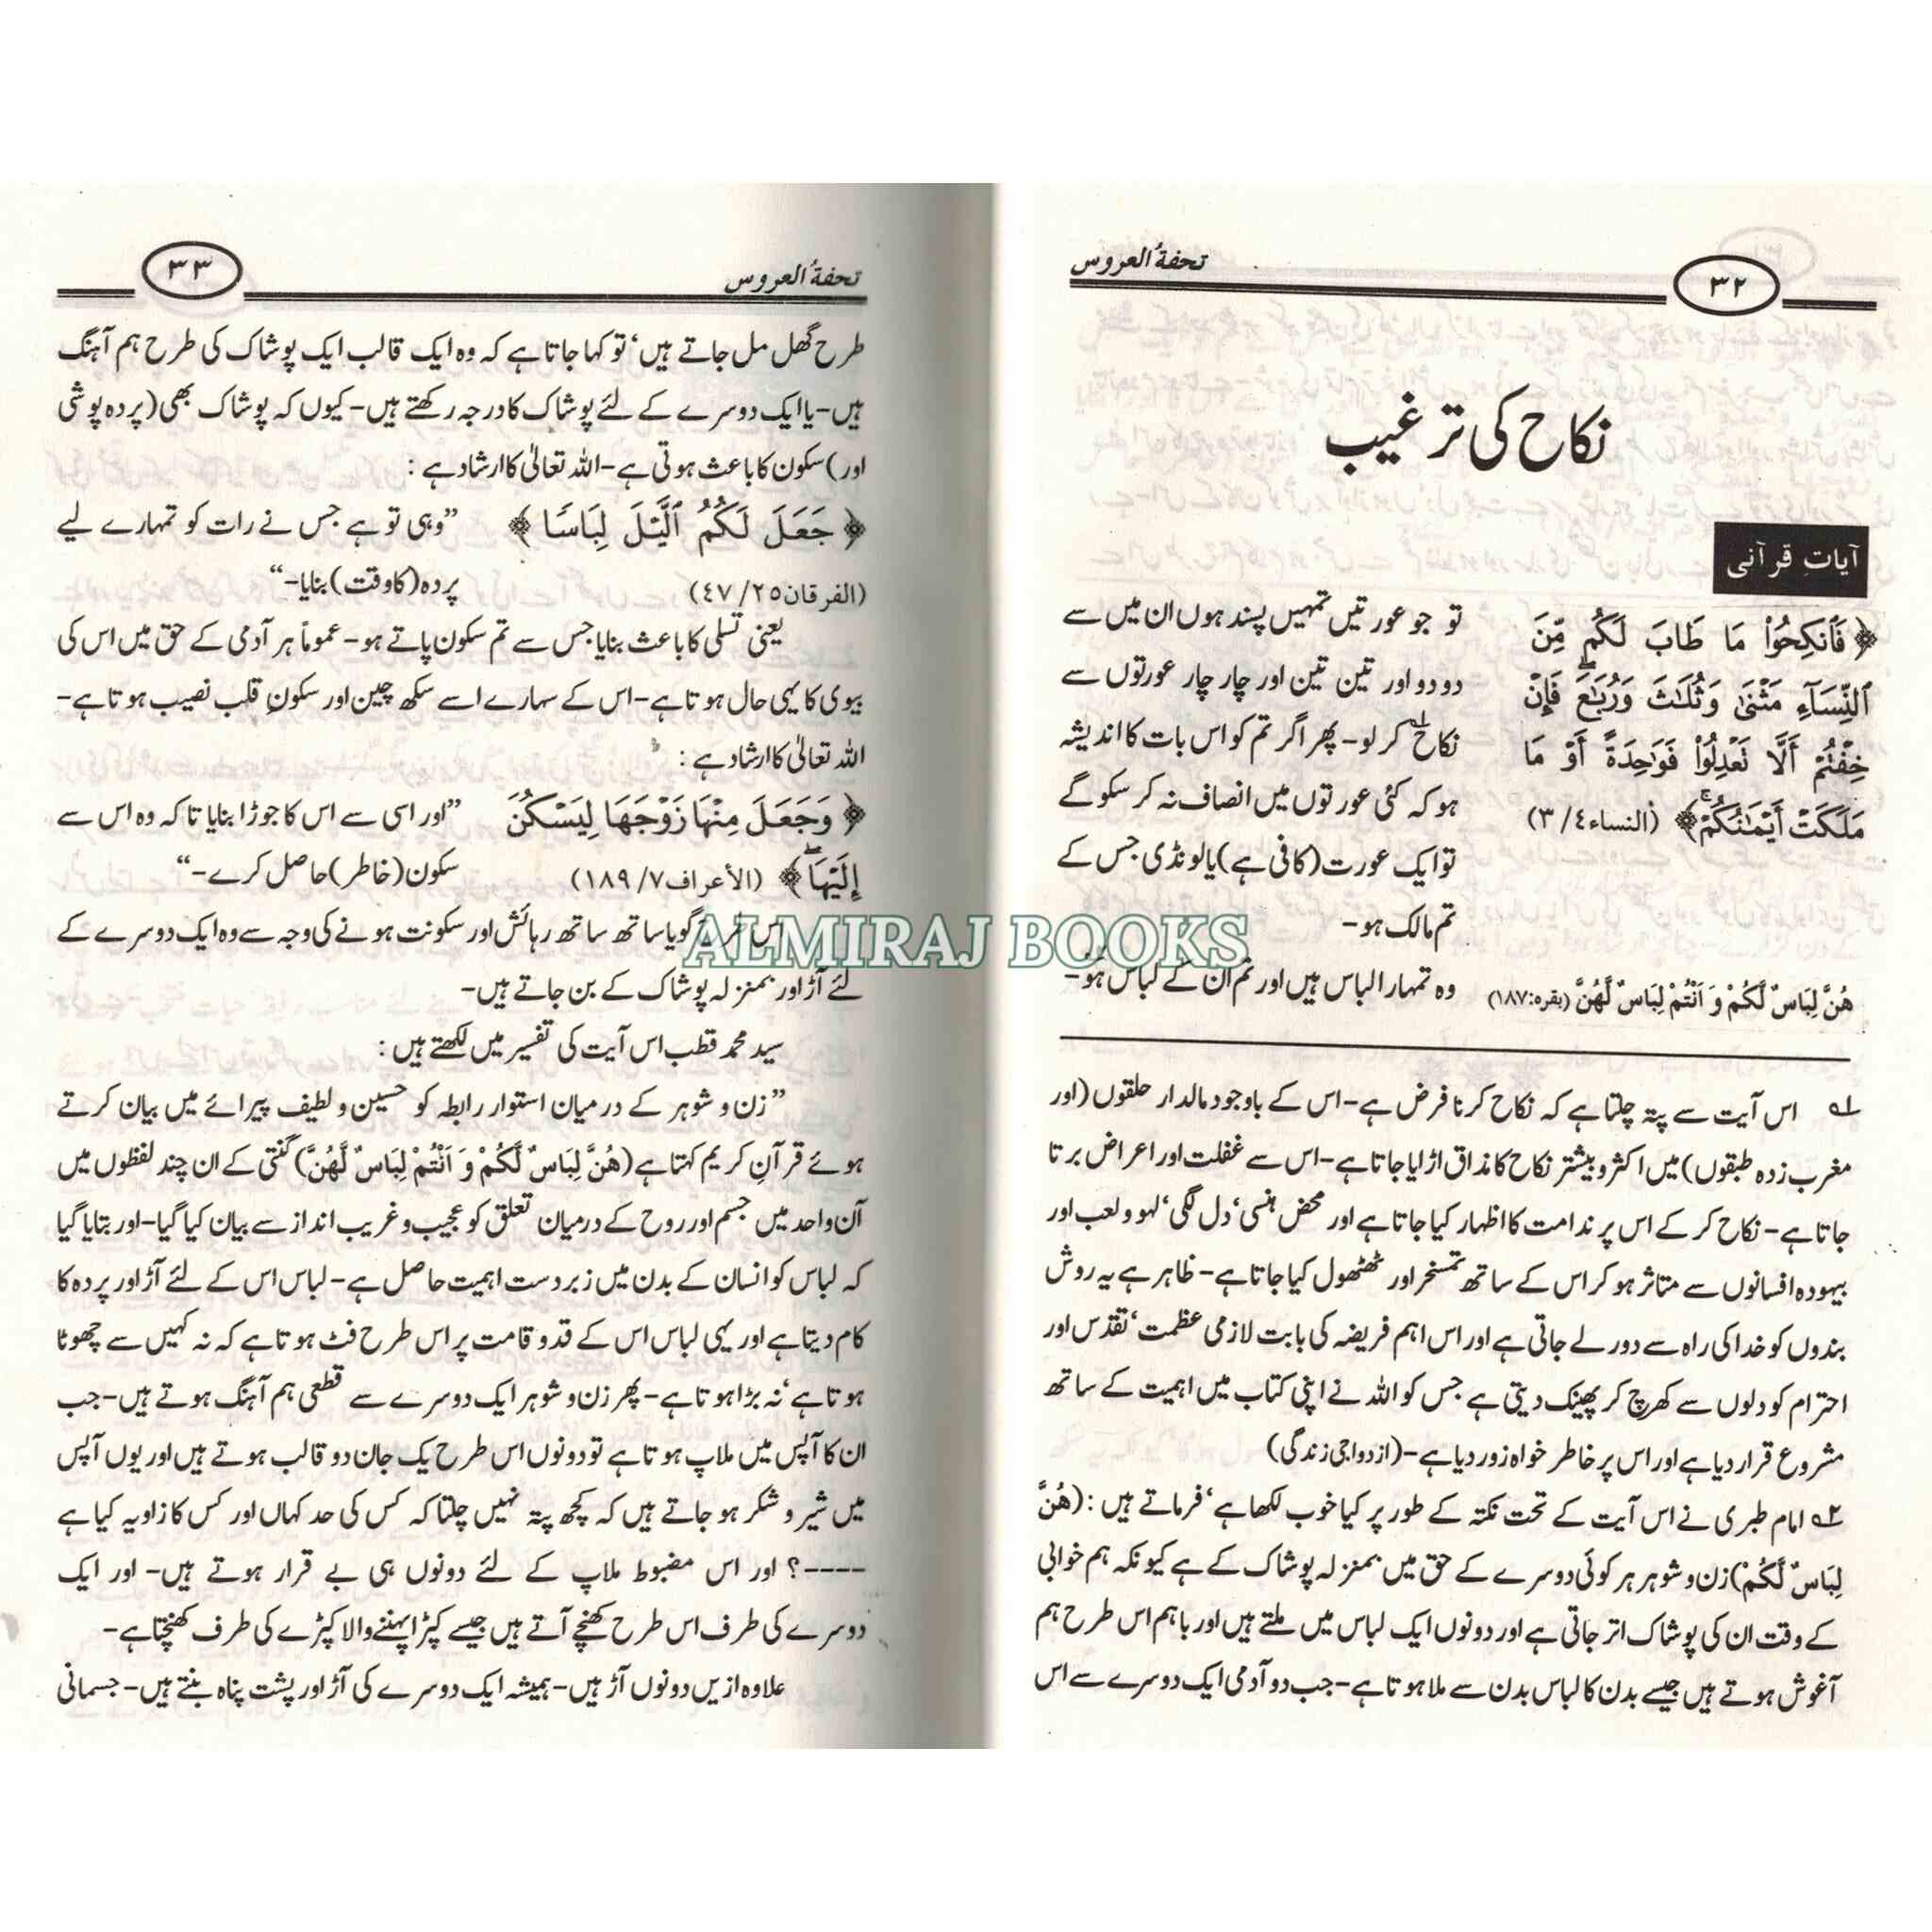 تحفۃُ العروس
۳۲
نکاح کی ترغیب
آیاتِ قرآنی
﴿ فَٱنكِحُوا۟ مَا طَابَ لَكُم مِّنَ
ٱلنِّسَآءِ مَثْنَىٰ وَثُلَـٰثَ وَرُبَـٰعَ ۖ فَإِنْ
خِفْتُمْ أَلَّا تَعْدِلُوا۟ فَوَٰحِدَةً أَوْ مَا
مَلَكَتْ أَيْمَـٰنُكُمْ ۚ ﴾ (النساء٤/ ٣)
تو جو عورتیں تمہیں پسند ہوں ان میں سے
دو دو اور تین تین اور چار چار عورتوں سے
نکاح ۱؎ کر لو- پھر اگر تم کو اس بات کا اندیشہ
ہو کہ کئی عورتوں میں انصاف نہ کر سکو گے
تو ایک عورت (کافی ہے) یا لونڈی جس کے
تم مالک ہو-
هُنَّ لِبَاسٌ لَّكُمْ وَ اَنْتُمْ لِبَاسٌ لَّهُنَّ (بقره:۱۸۷)
وہ تمہارا لباس ہیں اور تم ان کے لباس ہو-
۱؎ اس آیت سے پتہ چلتا ہے کہ نکاح کرنا فرض ہے- اس کے باوجود مالدار حلقوں (اور
مغرب زدہ طبقوں) میں اکثر و بیشتر نکاح کا مذاق اڑایا جاتا ہے- اس سے غفلت اور اعراض برتا
جاتا ہے- نکاح کر کے اس پر ندامت کا اظہار کیا جاتا ہے اور محض ہنسی‘ دل لگی‘ لہو و لعب اور
بیہودہ افسانوں سے متاثر ہو کر اس کے ساتھ تمسخر اور ٹھٹھول کیا جاتا ہے- ظاہر ہے یہ روش
بندوں کو خدا کی راہ سے دور لے جاتی ہے اور اس اہم فریضہ کی بابت لازمی عظمت‘ تقدس اور
احترام کو دلوں سے کھرچ کر پھینک دیتی ہے جس کو اللہ نے اپنی کتاب میں اہمیت کے ساتھ
مشروع قرار دیا ہے اور اس پر خاطر خواہ زور دیا ہے- (ازدواجی زندگی)
۲؎ امام طبری نے اس آیت کے تحت نکتہ کے طور پر کیا خوب لکھا ہے‘ فرماتے ہیں : (هُنَّ
لِبَاسٌ لَّكُمْ) زن و شوہر ہر کوئی دوسرے کے حق میں بمنزلہ پوشاک کے ہے کیونکہ ہم خوابی
کے وقت ان کی پوشاک اتر جاتی ہے اور دونوں ایک لباس میں ملتے ہیں اور باہم اس طرح ہم
آغوش ہوتے ہیں جیسے بدن کا لباس بدن سے ملا ہوتا ہے- جب دو آدمی ایک دوسرے سے اس
تحفۃُ العروس
۳۳
طرح گھل مل جاتے ہیں‘ تو کہا جاتا ہے کہ وہ ایک قالب ایک پوشاک کی طرح ہم آہنگ
ہیں- یا ایک دوسرے کے لئے پوشاک کا درجہ رکھتے ہیں- کیوں کہ پوشاک بھی (پردہ پوشی
اور) سکون کا باعث ہوتی ہے- اللہ تعالیٰ کا ارشاد ہے :
﴿ جَعَلَ لَكُمُ ٱلَّيْلَ لِبَاسًا ﴾
(الفرقان٢٥/ ٤٧)
”وہی تو ہے جس نے رات کو تمہارے لیے
پردہ (کا وقت) بنایا-“
یعنی تسلی کا باعث بنایا جس سے تم سکون پاتے ہو- عموماً ہر آدمی کے حق میں اس کی
بیوی کا یہی حال ہوتا ہے- اس کے سہارے اسے سکھ چین اور سکونِ قلب نصیب ہوتا ہے-
اللہ تعالیٰ کا ارشاد ہے :
﴿ وَجَعَلَ مِنْهَا زَوْجَهَا لِيَسْكُنَ
إِلَيْهَا ۖ ﴾ (الأعراف٧/ ١٨٩)
”اور اسی سے اس کا جوڑا بنایا تاکہ وہ اس سے
سکون (خاطر) حاصل کرے-“
اس طرح گویا ساتھ ساتھ رہائش اور سکونت ہونے کی وجہ سے وہ ایک دوسرے کے
لئے آڑ اور بمنزلہ پوشاک کے بن جاتے ہیں-
سید محمد قطب اس آیت کی تفسیر میں لکھتے ہیں :
”زن و شوہر کے درمیان استوار رابطہ کو حسین و لطیف پیرائے میں بیان کرتے
ہوئے قرآنِ کریم کہتا ہے (هُنَّ لِبَاسٌ لَّكُمْ وَ اَنْتُمْ لِبَاسٌ لَّهُنَّ) گنتی کے ان چند لفظوں میں
آن واحد میں جسم اور روح کے درمیان تعلق کو عجیب و غریب انداز سے بیان کیا گیا- اور بتایا گیا
کہ لباس کو انسان کے بدن میں زبردست اہمیت حاصل ہے- لباس اس کے لئے آڑ اور پردہ کا
کام دیتا ہے اور یہی لباس اس کے قد و قامت پر اس طرح فٹ ہوتا ہے کہ نہ کہیں سے چھوٹا
ہوتا ہے‘ نہ بڑا ہوتا ہے- پھر زن و شوہر ایک دوسرے سے قطعی ہم آہنگ ہوتے ہیں- جب
ان کا آپس میں ملاپ ہوتا ہے تو دونوں اس طرح یک جان دو قالب ہوتے ہیں اور یوں آپس
میں شیر و شکر ہو جاتے ہیں کہ کچھ پتہ نہیں چلتا کہ کس کی حد کہاں اور کس کا زاویہ کیا ہے
----؟ اور اس مضبوط ملاپ کے لئے دونوں ہی بے قرار ہوتے ہیں- اور ایک
دوسرے کی طرف اس طرح کھنچے آتے ہیں جیسے کپڑا پہننے والا کپڑے کی طرف کھنچتا ہے-
علاوہ ازیں دونوں آڑ ہیں- ہمیشہ ایک دوسرے کی آڑ اور پشت پناہ بنتے ہیں- جسمانی
ALMIRAJ BOOKS